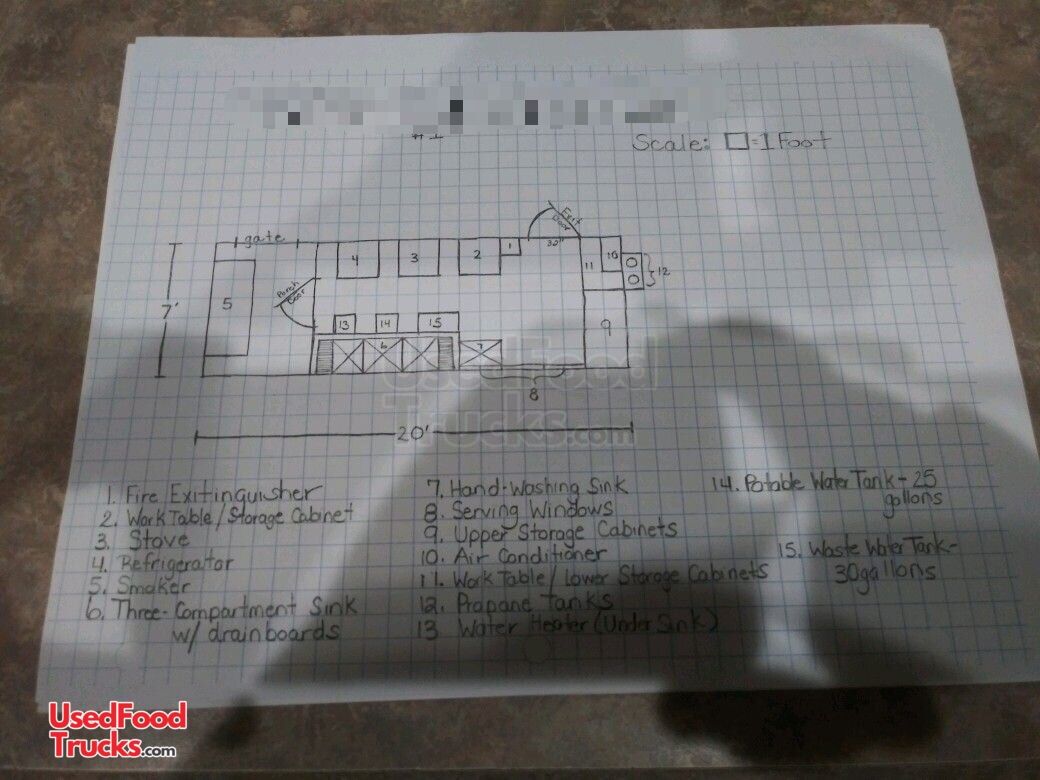 #1
Scale: □=1 Foot
gate
Exit Door
30"
1
2
3
4
10
11
12
Porch Door
5
7'
13
14
15
6
7
9
8
20'
1. Fire Exitinguisher
2. Work Table/Storage Cabinet
3. Stove
4. Refrigerator
5. Smoker
6. Three-Compartment Sink
w/ drainboards
7. Hand-Washing Sink
8. Serving Windows
9. Upper Storage Cabinets
10. Air Conditioner
11. Work Table/Lower Storage Cabinets
12. Propane Tanks
13 Water Heater (Under Sink)
14. Potable Water Tank-25
gallons
15. Waste Water Tank-
30gallons
UsedFood
Trucks.com
UsedFood
Trucks.com